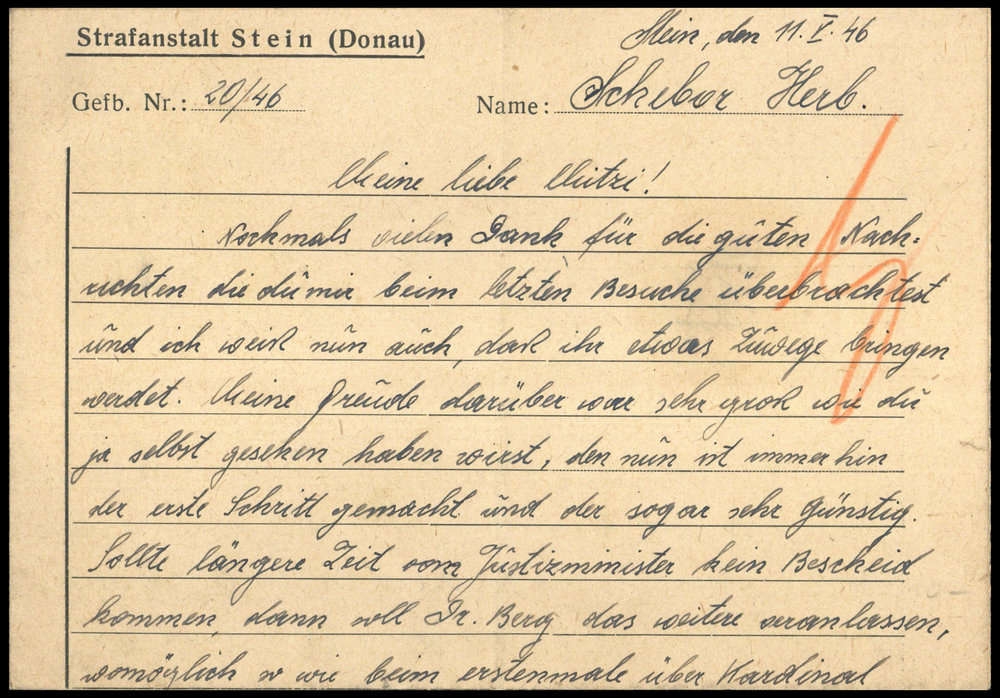 Strafanstalt Stein (Donau)
Stein, den 11. V. 46
Gefb. Nr.: 20/46
Name: Schebor Herb.
Meine liebe Mutzi!
Nochmals vielen Dank für die guten Nach-
richten die du mir beim letzten Besuche überbrachtest
und ich weiß nun auch, daß ihr etwas Zuwege bringen
werdet. Meine Freude darüber war sehr groß wie du
ja selbst gesehen haben wirst, den nun ist immerhin
der erste Schritt gemacht und der sogar sehr günstig.
Sollte längere Zeit vom Justizminister kein Bescheid
kommen, dann soll Dr. Berg das weitere veranlassen,
womöglich so wie beim erstenmale über Kardinal